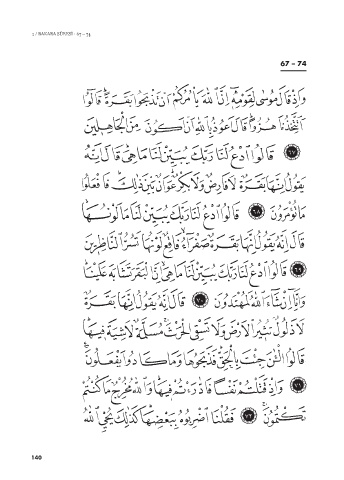 2 / BAKARA SÛRESİ · 67 - 74
67 – 74
وَاِذْ قَالَ مُوسٰى لِقَوْمِه۪ٓ اِنَّ اللّٰهَ يَأْمُرُكُمْ اَنْ تَذْبَحُوا بَقَرَةًۜ قَالُٓوا
اَتَتَّخِذُنَا هُزُواًۜ قَالَ اَعُوذُ بِاللّٰهِ اَنْ اَكُونَ مِنَ الْجَاهِل۪ينَ
﴿٦٧﴾ قَالُوا ادْعُ لَنَا رَبَّكَ يُبَيِّنْ لَنَا مَا هِيَۜ قَالَ اِنَّهُ
يَقُولُ اِنَّهَا بَقَرَةٌ لَا فَارِضٌ وَلَا بِكْرٌۜ عَوَانٌ بَيْنَ ذٰلِكَۜ فَافْعَلُوا
مَا تُؤْمَرُونَ ﴿٦٨﴾ قَالُوا ادْعُ لَنَا رَبَّكَ يُبَيِّنْ لَنَا مَا لَوْنُهَاۜ
قَالَ اِنَّهُ يَقُولُ اِنَّهَا بَقَرَةٌ صَفْرَٓاءُۙ فَاقِعٌ لَوْنُهَا تَسُرُّ النَّاظِر۪ينَ
﴿٦٩﴾ قَالُوا ادْعُ لَنَا رَبَّكَ يُبَيِّنْ لَنَا مَا هِيَۙ اِنَّ الْبَقَرَ تَشَابَهَ عَلَيْنَاۜ
وَاِنَّٓا اِنْ شَٓاءَ اللّٰهُ لَمُهْتَدُونَ ﴿٧٠﴾ قَالَ اِنَّهُ يَقُولُ اِنَّهَا بَقَرَةٌ
لَا ذَلُولٌ تُث۪يرُ الْاَرْضَ وَلَا تَسْقِي الْحَرْثَۚ مُسَلَّمَةٌ لَا شِيَةَ ف۪يهَاۜ
قَالُوا الْـٰٔنَ جِئْتَ بِالْحَقِّۜ فَذَبَحُوهَا وَمَا كَادُوا يَفْعَلُونَ۟
﴿٧١﴾ وَاِذْ قَتَلْتُمْ نَفْساً فَادّٰرَءْتُمْ ف۪يهَاۜ وَاللّٰهُ مُخْرِجٌ مَا كُنْتُمْ
تَكْتُمُونَۚ ﴿٧٢﴾ فَقُلْنَا اضْرِبُوهُ بِبَعْضِهَاۜ كَذٰلِكَ يُحْيِ اللّٰهُ
140